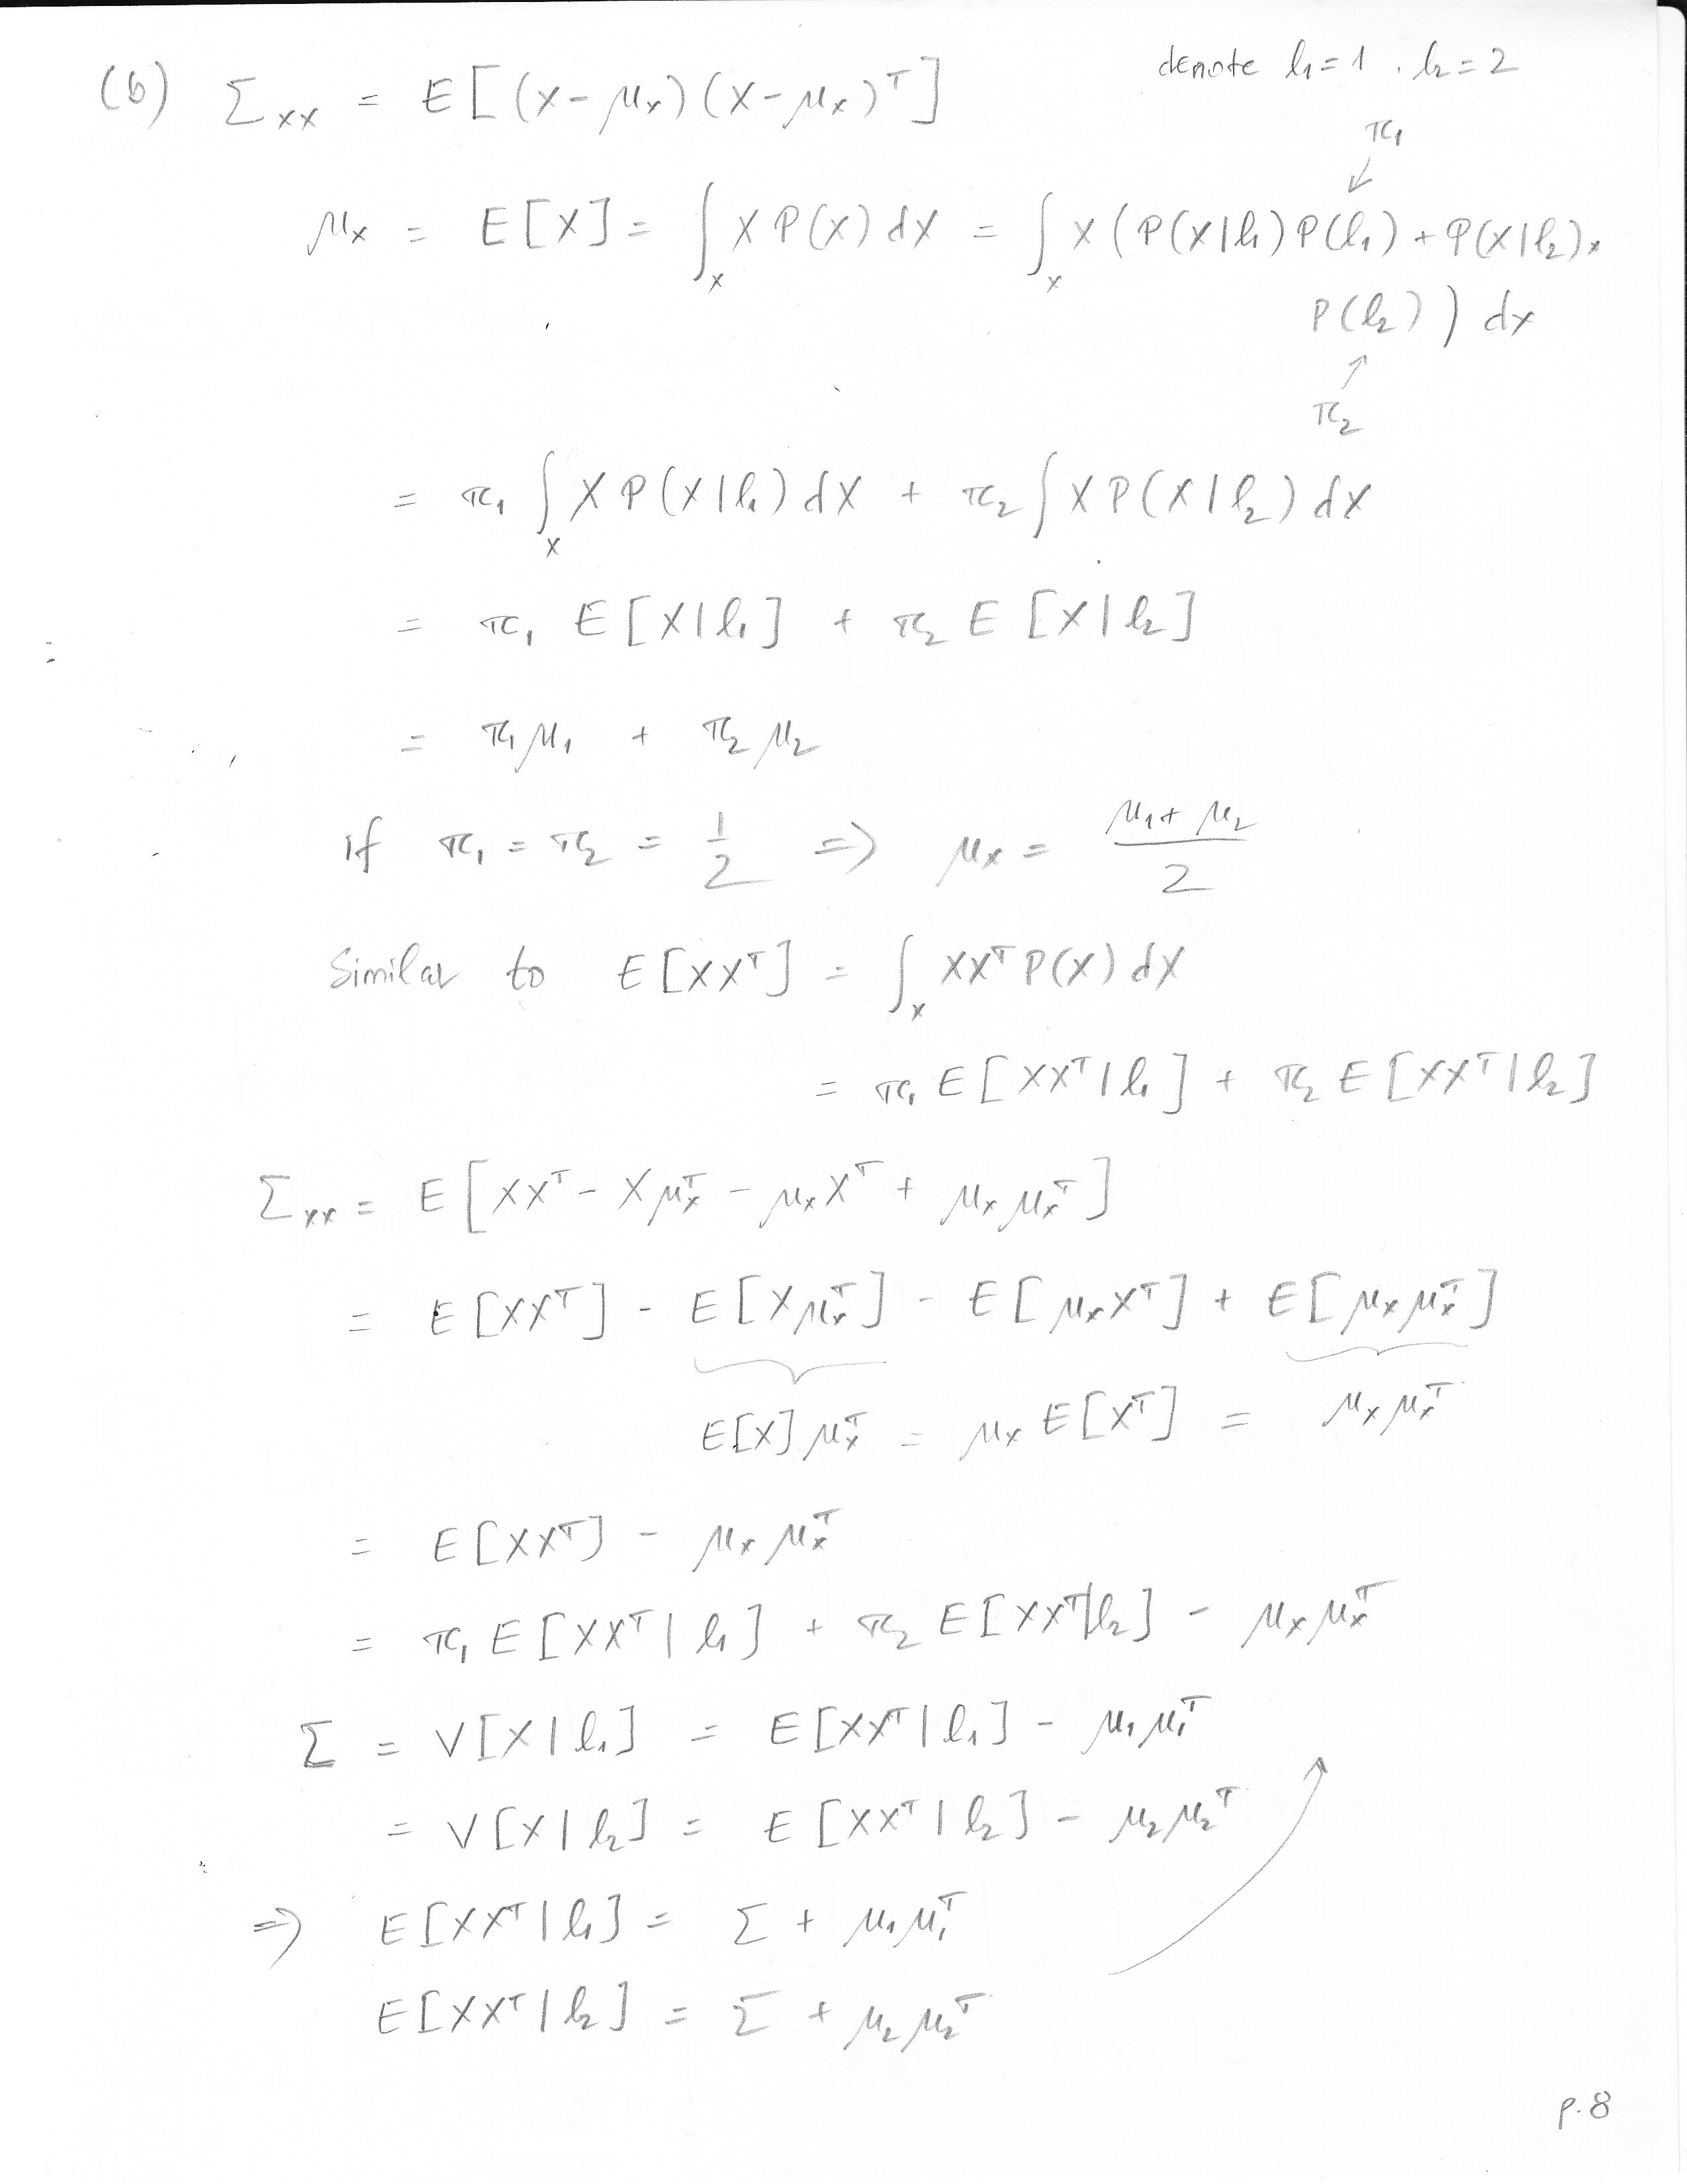 denote l₁=1 . l₂=2
(b) Σxx = E[(X-μx)(X-μx)ᵀ]
π₁
μx = E[X] = ∫x X P(X) dX = ∫x X (P(X|l₁)P(l₁) + P(X|l₂)×
P(l₂)) dx
π₂
= π₁ ∫x X P(X|l₁) dX + π₂ ∫ X P(X|l₂) dX
= π₁ E[X|l₁] + π₂ E[X|l₂]
= π₁μ₁ + π₂μ₂
if π₁ = π₂ = 1/2 => μx = (μ₁+μ₂)/2
Similar to E[XXᵀ] = ∫x XXᵀ P(X) dX
= π₁ E[XXᵀ|l₁] + π₂ E[XXᵀ|l₂]
Σxx = E[XXᵀ - Xμxᵀ - μxXᵀ + μxμxᵀ]
= E[XXᵀ] - E[Xμxᵀ] - E[μxXᵀ] + E[μxμxᵀ]
E[X]μxᵀ = μx E[Xᵀ] = μxμxᵀ
= E[XXᵀ] - μxμxᵀ
= π₁ E[XXᵀ|l₁] + π₂ E[XXᵀ|l₂] - μxμxᵀ
Σ = V[X|l₁] = E[XXᵀ|l₁] - μ₁μ₁ᵀ
= V[X|l₂] = E[XXᵀ|l₂] - μ₂μ₂ᵀ
=> E[XXᵀ|l₁] = Σ + μ₁μ₁ᵀ
E[XXᵀ|l₂] = Σ + μ₂μ₂ᵀ
p.8